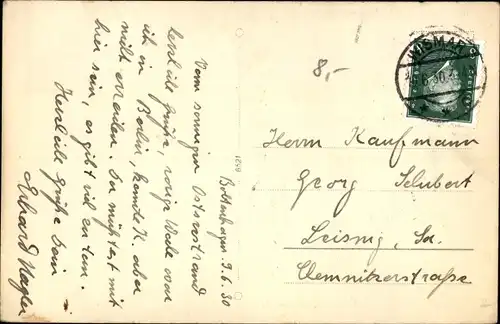 Boltenhagen 9.6.30
Vom sonnigen Ostseestrand
herzliche Grüße, vorige Woche war
ich in Berlin, konnte K. aber
nicht erreichen. Du müßtest mit
hier sein, es gibt viel
Herzliche Grüße Dein
Erhard
1658
8,-
WISMAR
6.30
Herrn Kaufmann
Georg Schubert
Leisnig, Sa.
Chemnitzerstraße